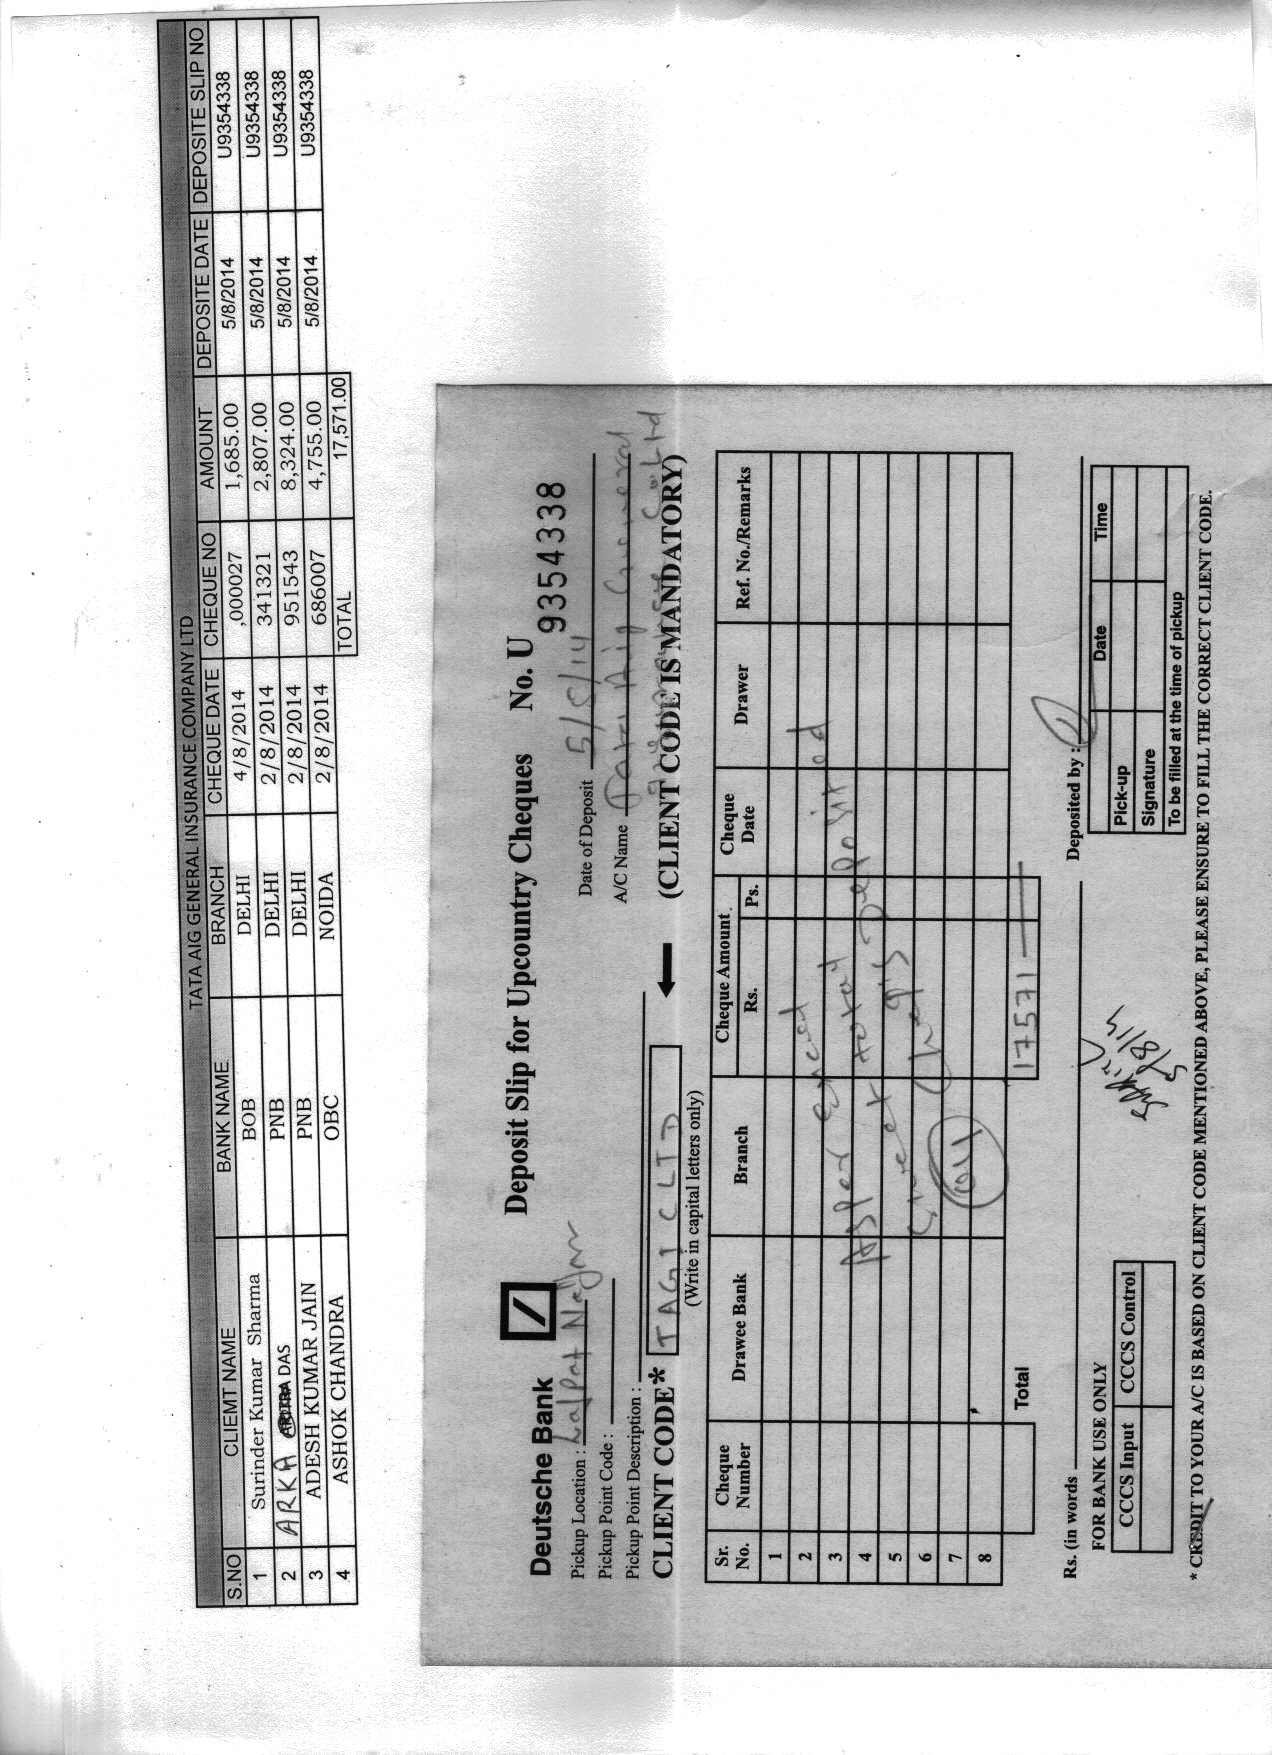 TATA AIG GENERAL INSURANCE COMPANY LTD
S.NO CLIEMT NAME BANK NAME BRANCH CHEQUE DATE CHEQUE NO AMOUNT DEPOSITE DATE DEPOSITE SLIP NO
1 Surinder Kumar Sharma BOB DELHI 4/8/2014 ,000027 1,685.00 5/8/2014 U9354338
2 ARKA DAS PNB DELHI 2/8/2014 341321 2,807.00 5/8/2014 U9354338
3 ADESH KUMAR JAIN PNB DELHI 2/8/2014 951543 8,324.00 5/8/2014 U9354338
4 ASHOK CHANDRA OBC NOIDA 2/8/2014 686007 4,755.00 5/8/2014 U9354338
TOTAL 17,571.00
Deutsche Bank Deposit Slip for Upcountry Cheques No. U 9354338
Pickup Location : Lajpat Nagar Date of Deposit 5/8/14
Pickup Point Code : A/C Name Tata Aig General
Pickup Point Description : Insurance Co Ltd
CLIENT CODE* TAGICLTD (CLIENT CODE IS MANDATORY)
(Write in capital letters only)
Sr. No. Cheque Number Drawee Bank Branch Cheque Amount Rs. Ps. Cheque Date Drawer Ref. No./Remarks
1
2
3
4
5
6
7
8
As per Enced
sheet total
Cheq's Deposited
Total 17571
Rs. (in words Deposited by :
FOR BANK USE ONLY
CCCS Input CCCS Control
Date Time
Pick-up
Signature
To be filled at the time of pickup
* CREDIT TO YOUR A/C IS BASED ON CLIENT CODE MENTIONED ABOVE, PLEASE ENSURE TO FILL THE CORRECT CLIENT CODE.